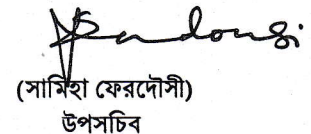 (সামিহা ফেরদৌসী)
উপসচিব